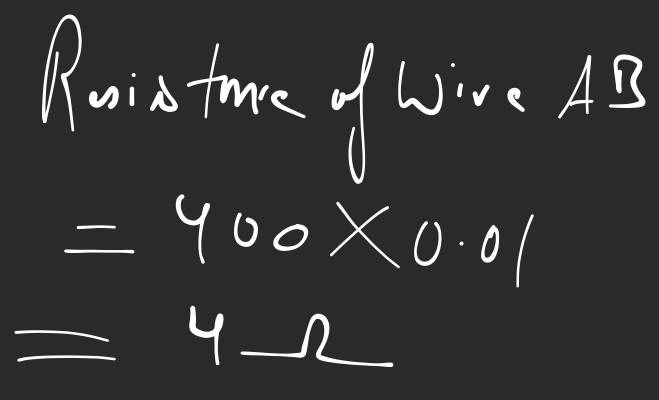 Resistance of Wire AB
= 400 × 0.01
= 4 Ω